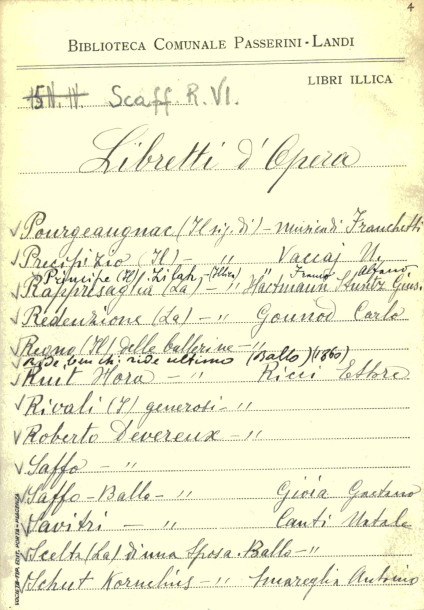 4
BIBLIOTECA COMUNALE PASSERINI-LANDI
LIBRI ILLICA
Scaff. R. VI.
Libretti d'Opera
Pourgeaugnac (Il sig. di) - musica di Franchetti
Precipizio (Il) - " Vaccaj N.
Principe (Il) Zilah - (Illica) Franco Alfano
Rappresaglia (La) - " Hartmann Stuntz Gius.
Redenzione (La) - " Gounod Carlo
Regno (Il) delle ballerine - "
Ride ben chi ride ultimo (Ballo) (1860)
Ruit Hora - Ricci Ettore
Rivali (I) generosi - "
Roberto Devereux - "
Saffo - "
Saffo - Ballo - " Gioia Gaetano
Savitri - " Canti Natale
Scelta (La) di una Sposa. Ballo - "
Schut Kornelius - " Smareglia Antonio